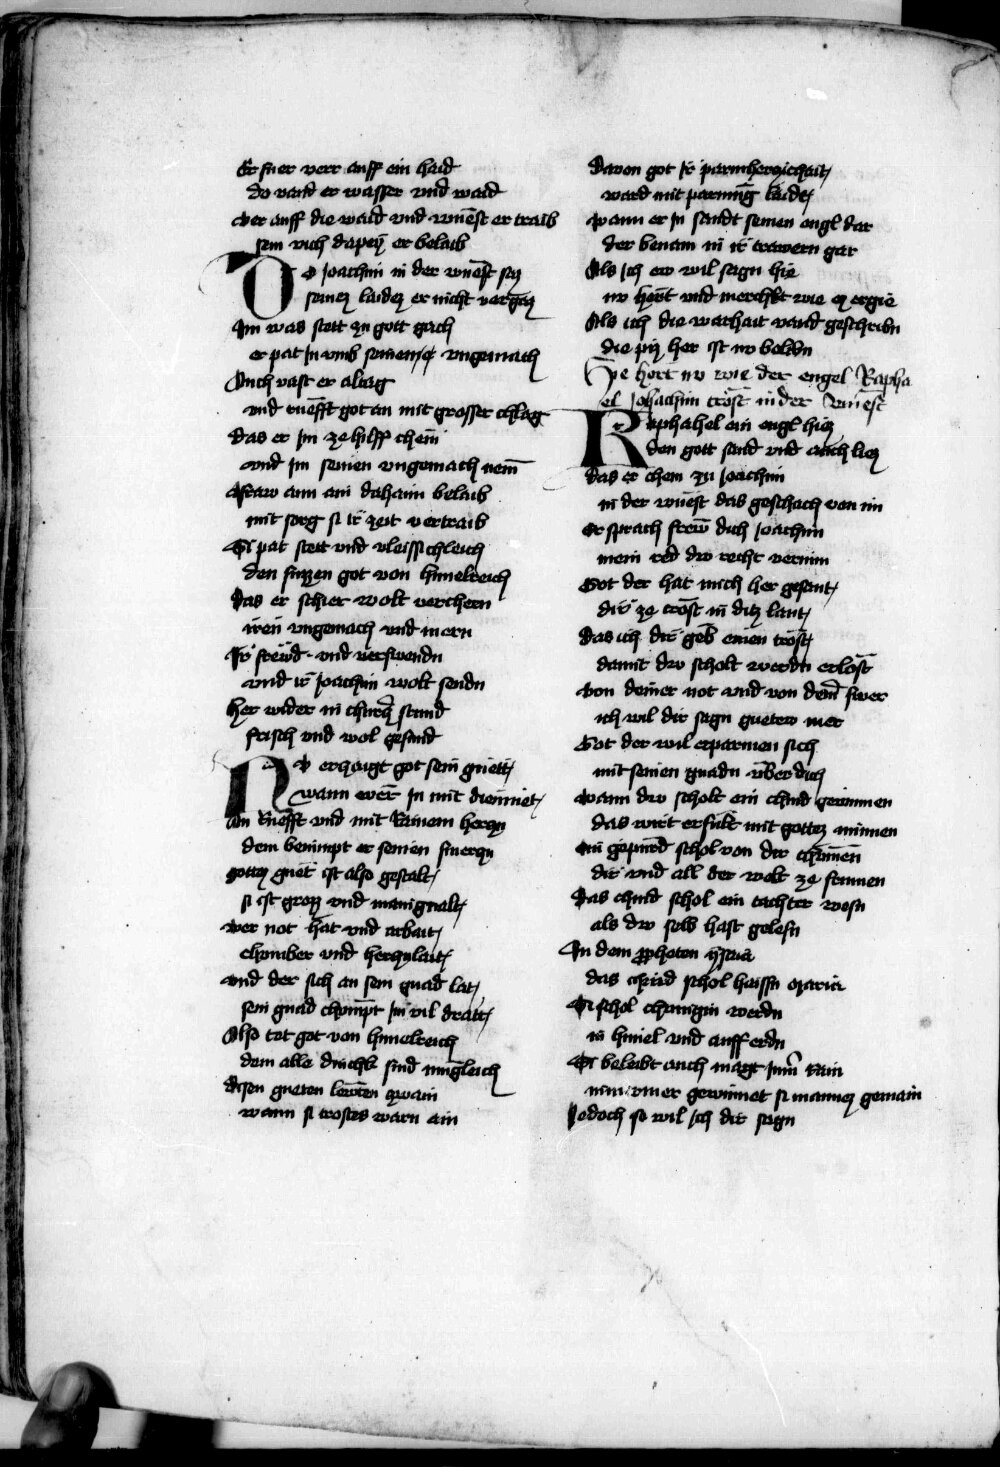 Er fuer verr auff ein haid
do vand er wasser vnd waid
Ver auff die waid vnd wuest er traib
sein vich dapey er belaib
Do Joachim in der wuest sey
seinez laidez er nicht vergaz
Im was stett zu gott gach
er pat in vmb seinen ungemach
Auch vast er altag
vnd ruefft got an mit grosser chlag
das er im ze hilff chem
vnd im seinen vngemach nem
Fraw ann ain dahaim belaib
mit sorg si ir zeit vertraib
Si pat stett vnd vleissichleich
den suzzen got von himelreich
Das er schier wolt verchern
iren vngemach vnd mern
Ir frewd vnd verswendn
vnd ir Joachim wolt sendn
Her wider in churtz stund
frisch vnd wol gesund
Nv erzaigt got sein guett
wann wer in mit diemuet
An ruefft vnd mit rainem herczn
dem benimpt er seinen smerczn
gottez guet ist also gestalt
si ist grozz vnd manigualt
wer not hat vnd arbait
chomber vnd herczlait
vnd der sich an sein gnad lat
sein gnad chompt im vil dratt
Also tet got von himelreich
dem alle dinchk sind muglich
disen gueten lewten zwain
wann si trostes warn ain
Davon got ir parmherczichait
ward mit parmung laide
wann er in sandt seinen engl dar
der benam in ir trawern gar
Als ich ew wil sagn hie
nv hört vnd merchkt wie ez ergie
Als ich die warhait vand geschribn
die piz her ist nv belibn
Hye hört nv wie der engel Rapha
el Johachim tröst in der wuest
Raphahel ein engl hiez
den gott sand vnd auch liez
das er chem zu Joachim
in der wuest das geschach von im
Er sprach frew dich Joachim
mein red dw recht vernim
Got der hat mich her gesant
dir ze trost in ditz lant
Das ich dir geb einen trost
damit dw scholt werdn erlost
von deiner not vnd von dem swer
ich wil dir sagn guetew mer
Got der wil erparmen sich
mit seinen gnadn vber dich
wann dw scholt ein chind gewinnen
das wirt erfült mit gottez minnen
ain gepurd schol von dir chumen
dir vnd all der welt ze frumen
Das chind schol ein tachter wesn
als dw selb hast gelesn
In dem propheten ysaia
das chind schol haissn maria
Si schol chunigin werdn
in himel vnd auff erdn
Si beleibt auch magt imer rain
nimmer gewinnet si mannez gemain
Jedoch so wil ich dir sagn